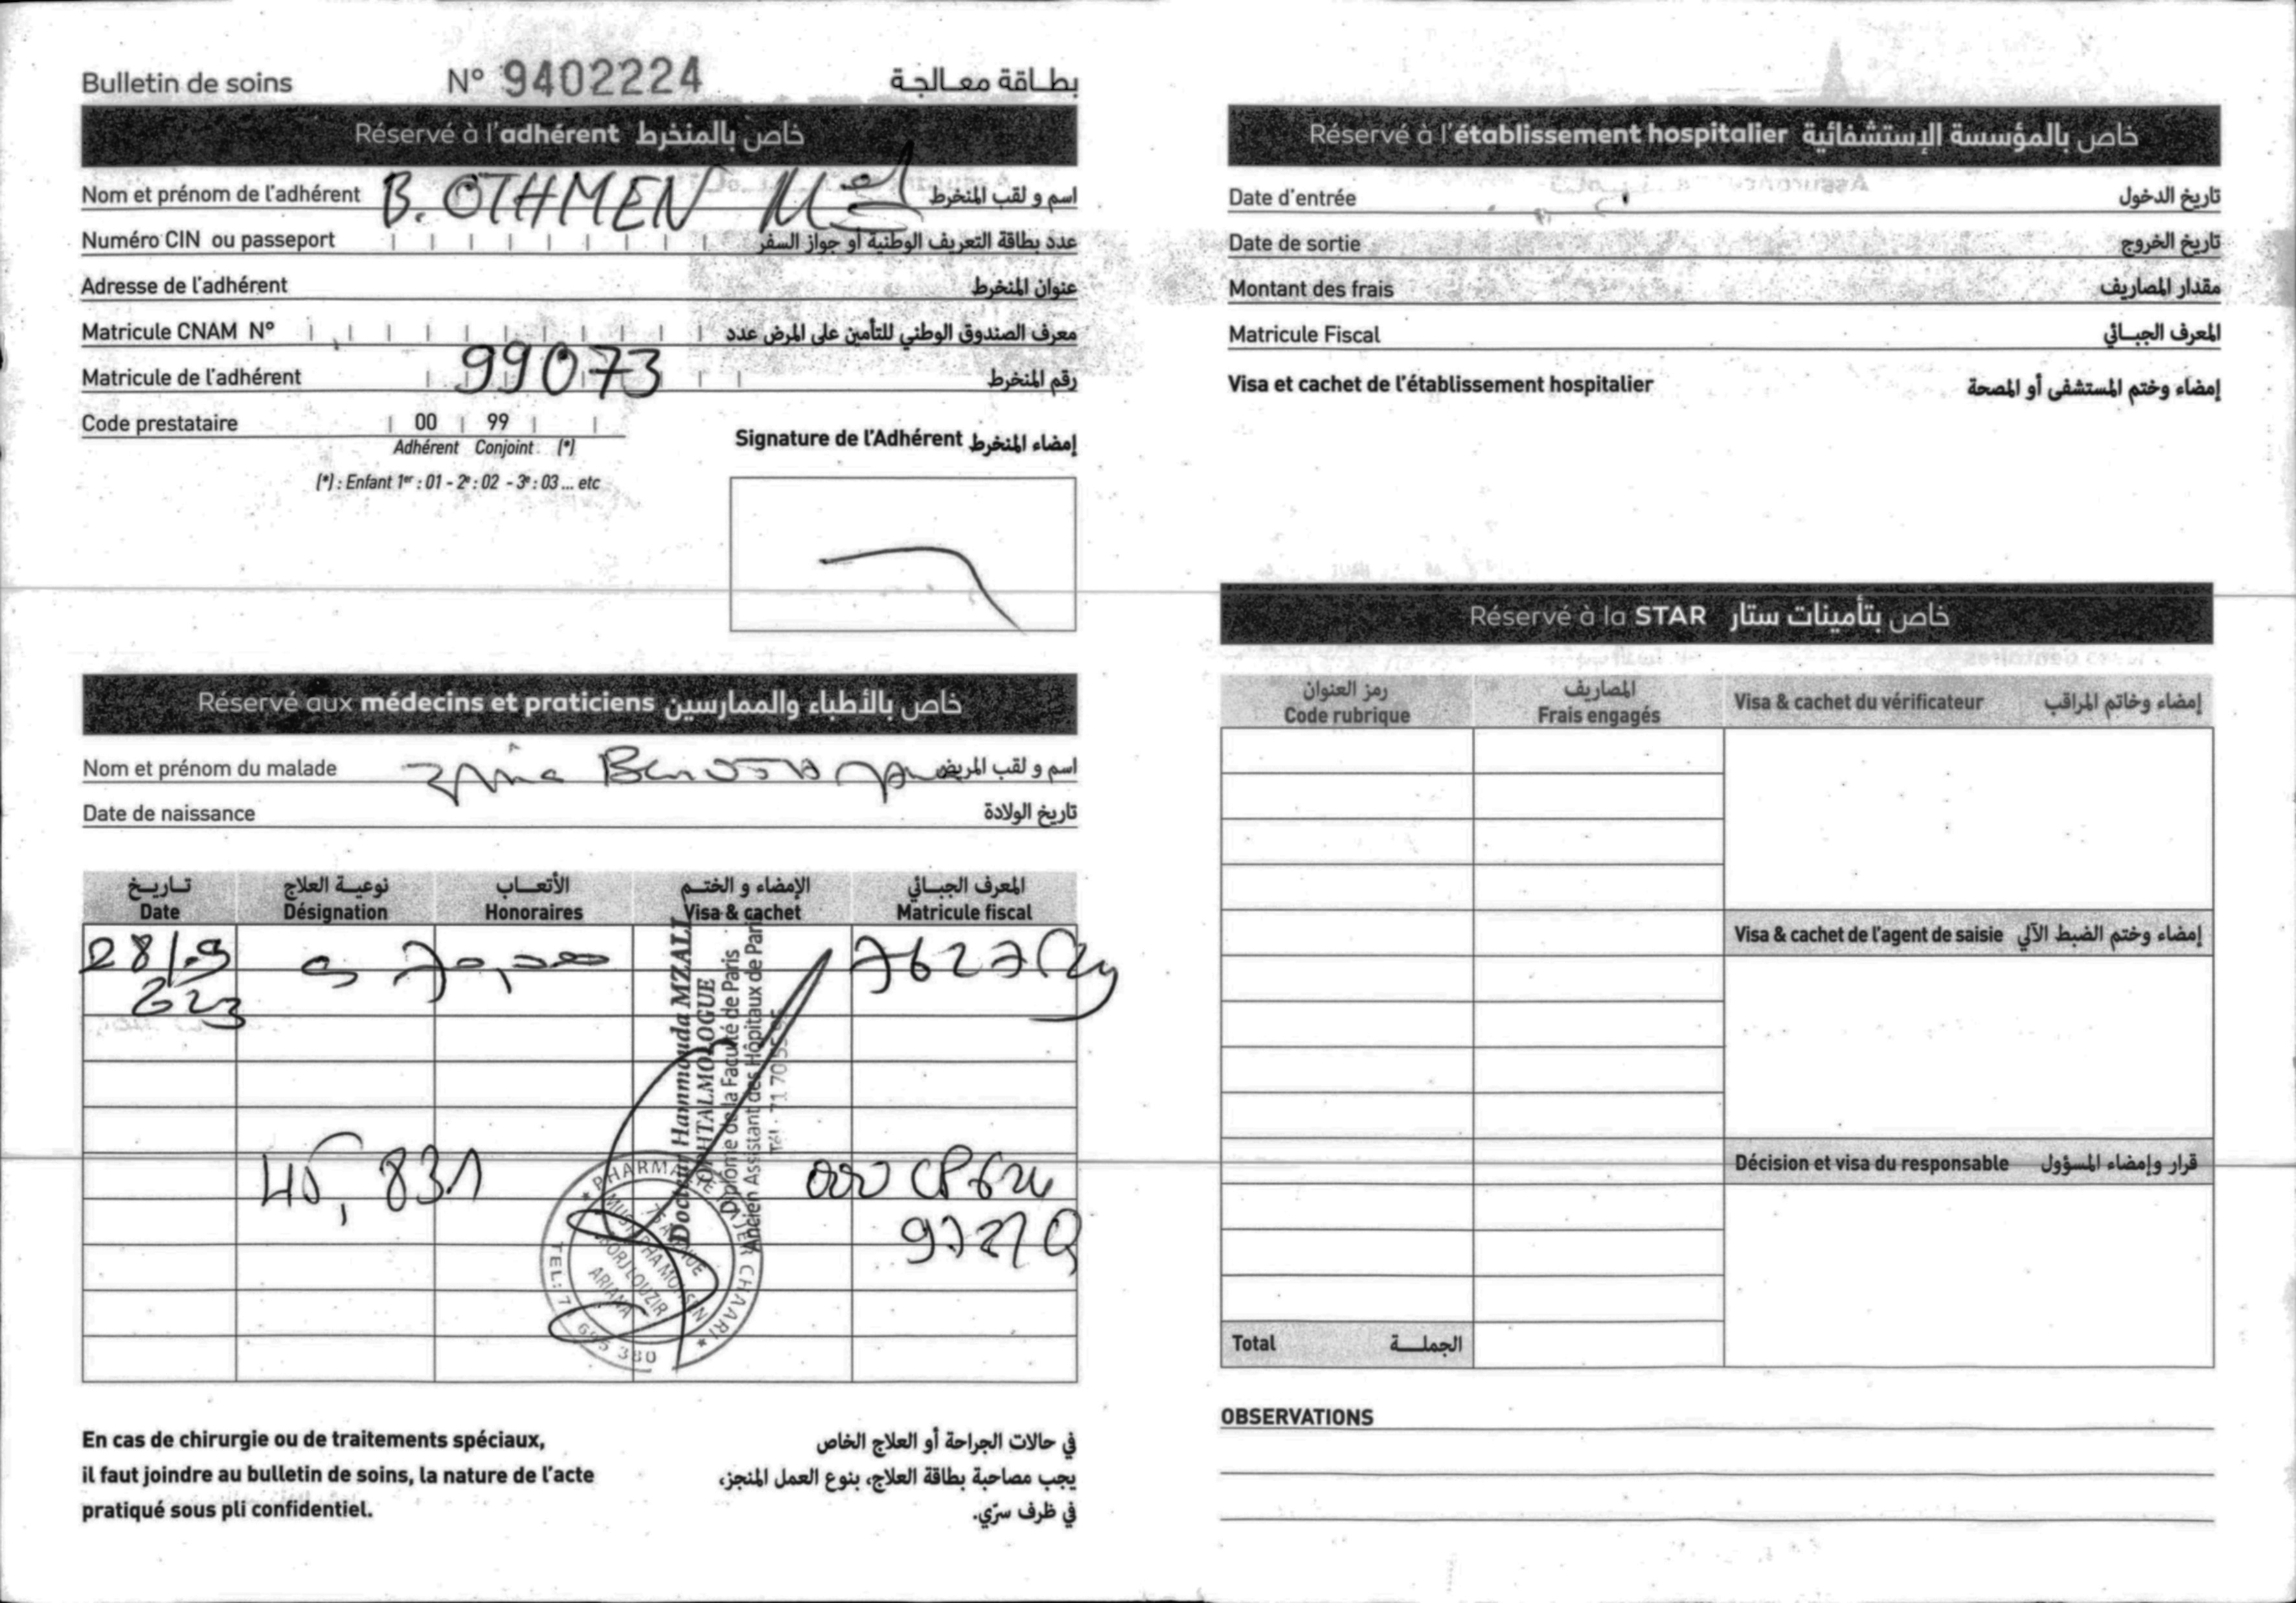 Bulletin de soins N° 9402224 بطاقة معالجة
Réservé à l'adhérent خاص بالمنخرط
Nom et prénom de l'adhérent B. OTHMEN اسم و لقب المنخرط
Numéro CIN ou passeport عدد بطاقة التعريف الوطنية أو جواز السفر
Adresse de l'adhérent عنوان المنخرط
Matricule CNAM N° معرف الصندوق الوطني للتأمين على المرض عدد
Matricule de l'adhérent 99073 رقم المنخرط
Code prestataire 00 99
Adhérent Conjoint (*)
(*) : Enfant 1er : 01 - 2e : 02 - 3e : 03 ... etc
Signature de l'Adhérent إمضاء المنخرط
Réservé aux médecins et praticiens خاص بالأطباء والممارسين
Nom et prénom du malade Ben اسم و لقب المريض
Date de naissance تاريخ الولادة
تاريخ نوعية العلاج الأتعاب الإمضاء و الختم المعرف الجبائي
Date Désignation Honoraires Visa & cachet Matricule fiscal
28/.9 70,000
2023
Docteur Hammouda MZALI
OPHTALMOLOGUE
Diplômé de la Faculté de Paris
Ancien Assistant des Hôpitaux de Paris
45,831
PHARMACIE CHAARI
75 AVENUE
MUSTAPHA MOHSEN
BORJ LOUZIR
ARIANA
En cas de chirurgie ou de traitements spéciaux,
il faut joindre au bulletin de soins, la nature de l'acte
pratiqué sous pli confidentiel.
في حالات الجراحة أو العلاج الخاص
يجب مصاحبة بطاقة العلاج، بنوع العمل المنجز،
في ظرف سرّي.
Réservé à l'établissement hospitalier خاص بالمؤسسة الإستشفائية
Date d'entrée تاريخ الدخول
Date de sortie تاريخ الخروج
Montant des frais مقدار المصاريف
Matricule Fiscal المعرف الجبائي
Visa et cachet de l'établissement hospitalier إمضاء وختم المستشفى أو المصحة
Réservé à la STAR خاص بتأمينات ستار
رمز العنوان المصاريف
Code rubrique Frais engagés Visa & cachet du vérificateur إمضاء وخاتم المراقب
Visa & cachet de l'agent de saisie إمضاء وختم الضبط الآلي
Décision et visa du responsable قرار وإمضاء المسؤول
Total الجملة
OBSERVATIONS